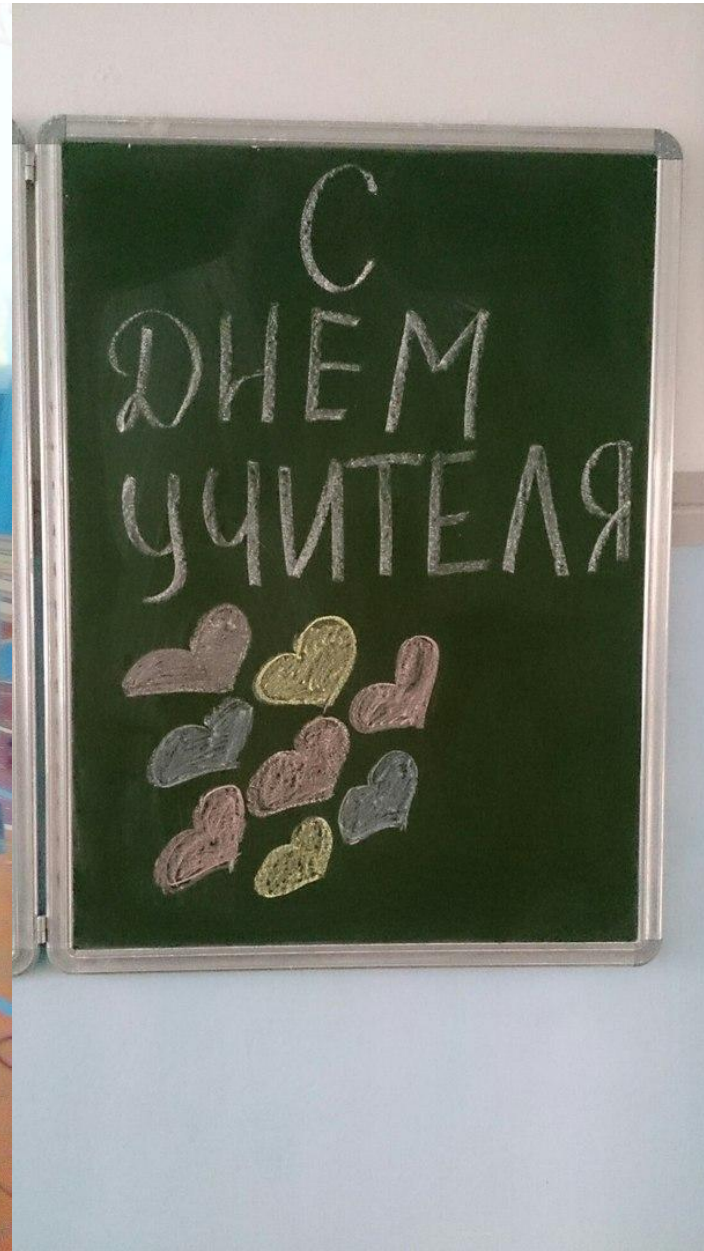 С
ДНЕМ
УЧИТЕЛЯ